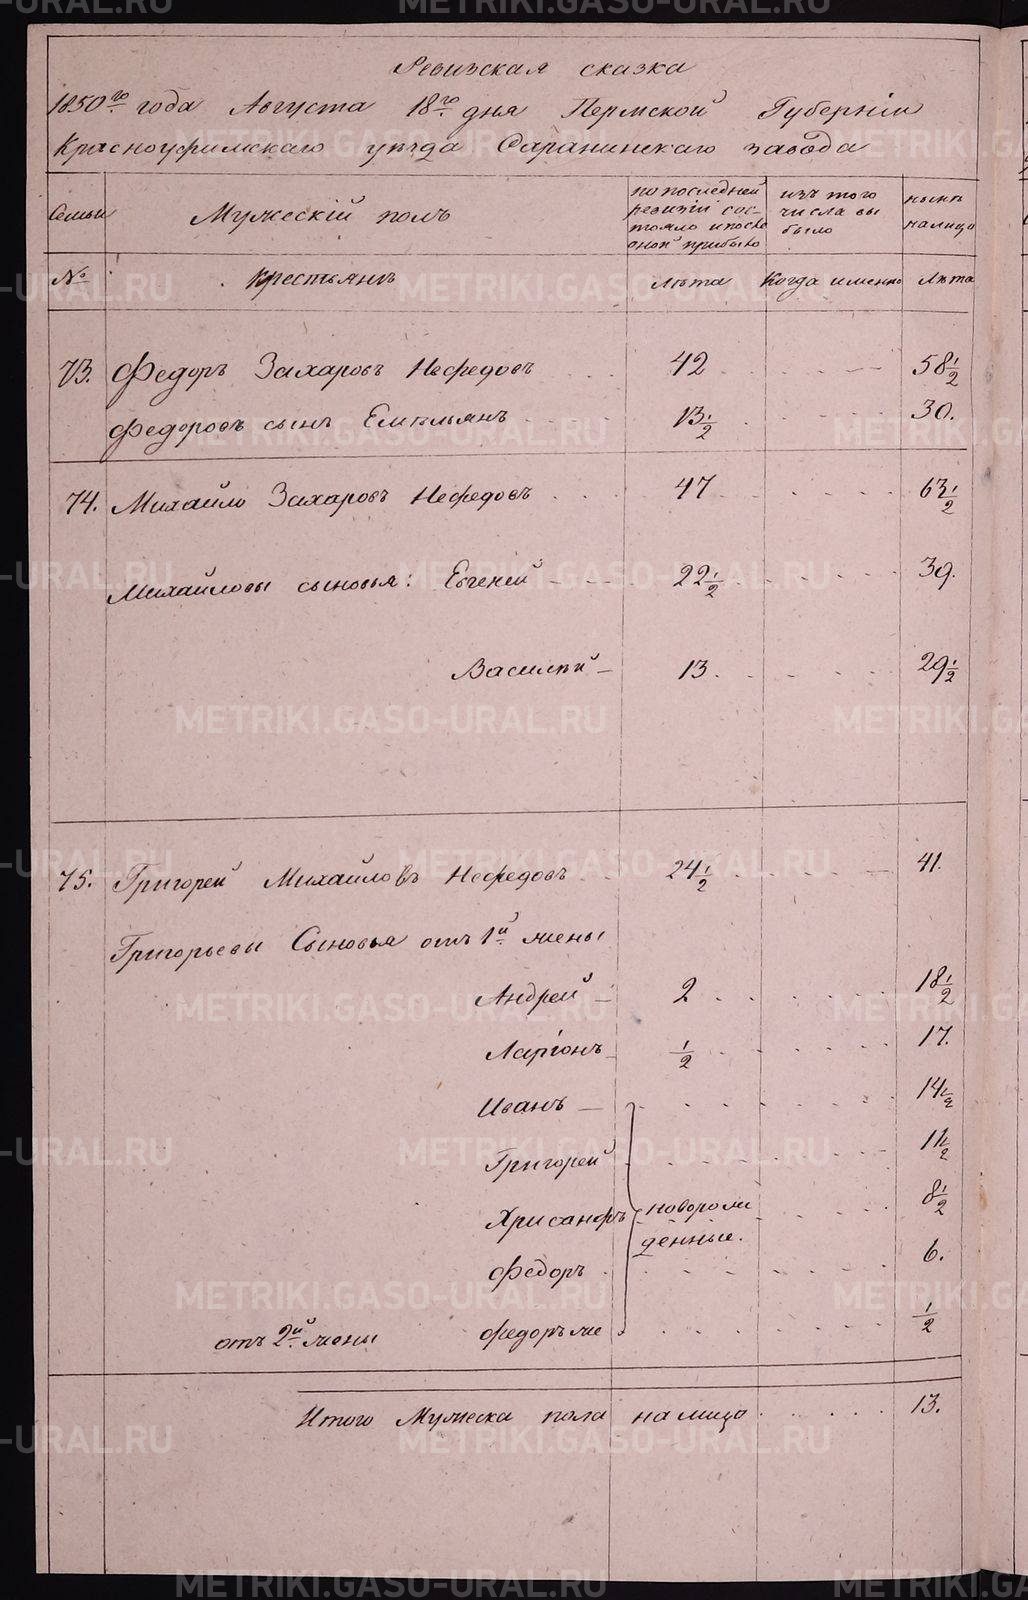 Ревизская сказка
1850го года Августа 18го дня Пермской Губернiи
Красноуфимскаго уѣзда Саранинскаго завода
Семьи
Мужескiй полъ
по последней
ревизiи сос-
тояло и посло
оной прибыло
изъ того
числа вы
было
нынѣ
налицо
№
Крестьянъ
лѣта
Когда именно
Лѣта
73. Федоръ Захаровъ Нефедовъ 42 58 1/2
Федоровъ сынъ Емельянъ 13 1/2 30.
74. Михайло Захаровъ Нефедовъ 47 63 1/2
Михайловы сыновья: Евгеней 22 1/2 39.
Василѣй 13. 29 1/2
75. Григорей Михайловъ Нефедовъ 24 1/2 41.
Григорьевы Сыновья отъ 1й жены
Андрей 2 18 1/2
Ларiонъ 1/2 17.
Иванъ 14 1/2
Григорей 11 1/2
Хрисанфъ новорож 8 1/2
денные.
Федоръ 6.
отъ 2й жены Федоръ же 1/2
Итого Мужеска пола на лицо 13.
METRIKI.GASO-URAL.RU